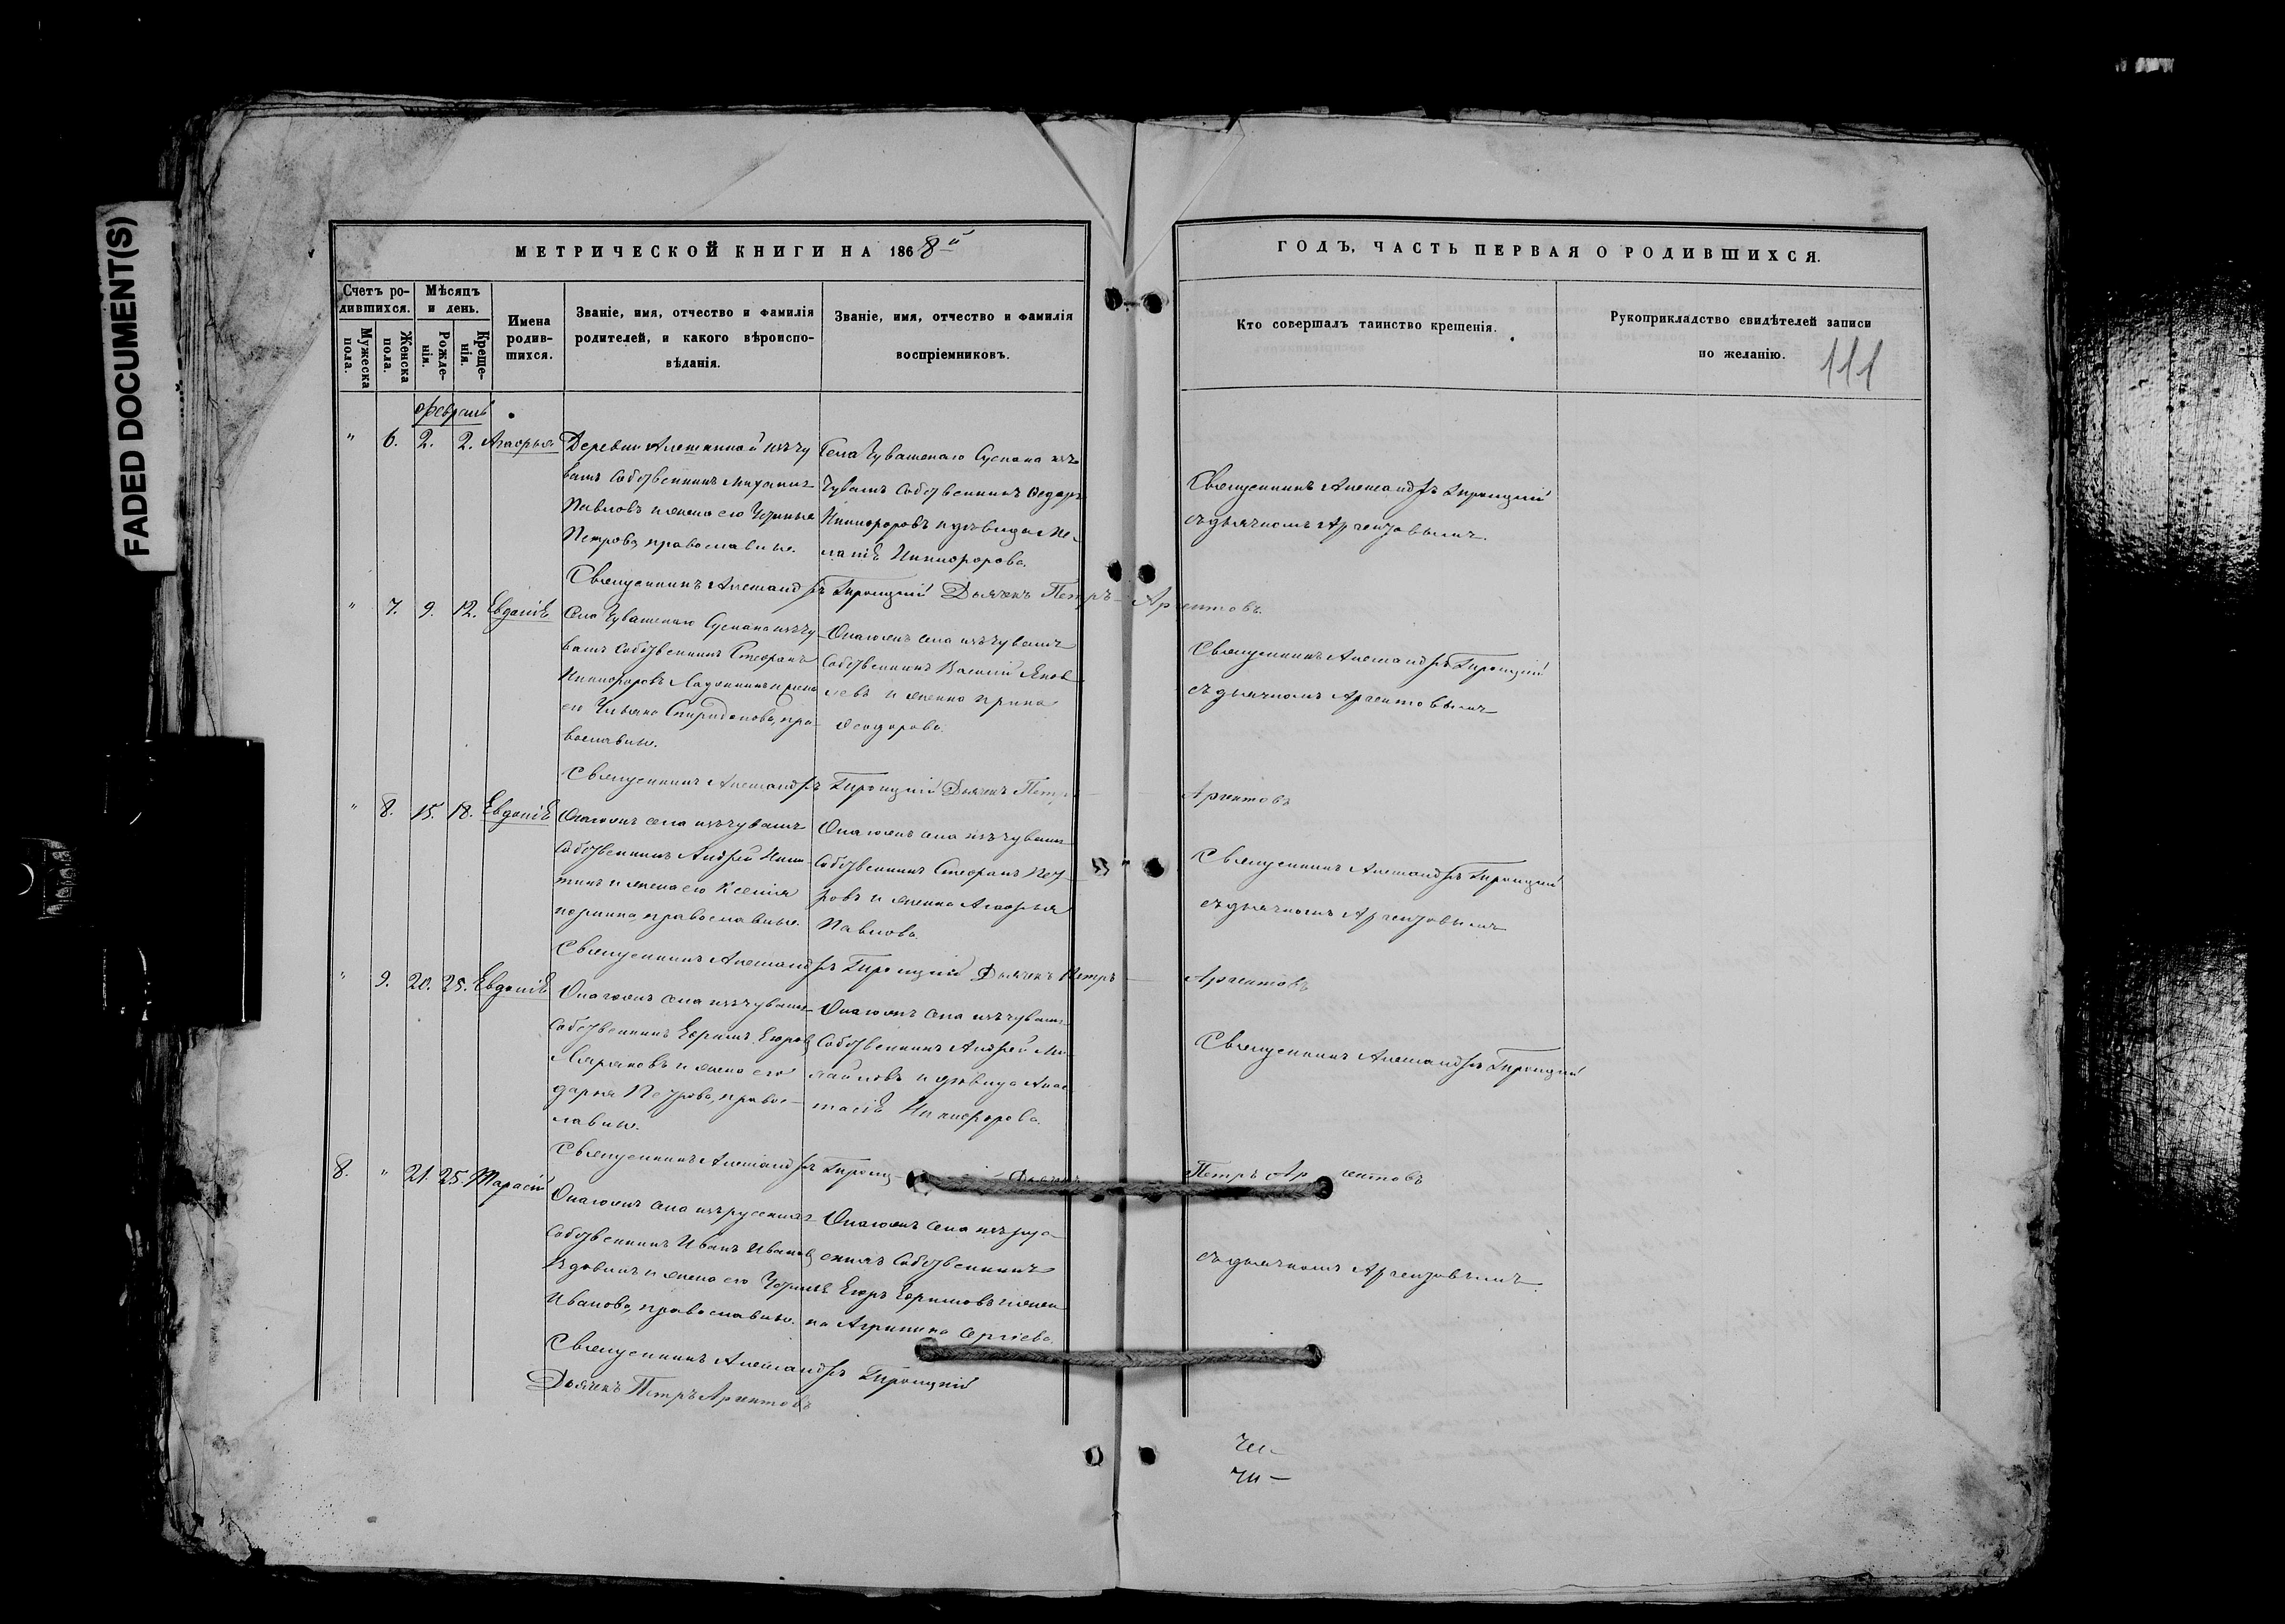 FADED DOCUMENT(S)
МЕТРИЧЕСКОЙ КНИГИ НА 1868й
ГОДЪ, ЧАСТЬ ПЕРВАЯ О РОДИВШИХСЯ.
111
Счетъ родившихся.
Мужеска пола.
Женска пола.
Мѣсяцъ и день.
Рожденія.
Крещенія.
Имена родившихся.
Званіе, имя, отчество и фамилія
родителей, и какого вѣроиспо-
вѣданія.
Званіе, имя, отчество и фамилія
воспріемниковъ.
Кто совершалъ таинство крещенія.
Рукоприкладство свидѣтелей записи
по желанію.
Февраль
" 6. 2. 2. Агафья
Деревни изъ чу
вашъ собственникъ
Павловъ и жена его
Петрова, православные.
Села Чувашскаго Сускана изъ
Чувашъ собственникъ Ѳедоръ
Никифоровъ и дѣвица Ме-
латіѣ Никифорова.
Священникъ Александръ Троицкій
съ дьячкомъ Аргентовымъ.
Священникъ Александръ Троицкій Дьячекъ Петръ Аргентовъ.
" 7. 9. 12. Евдокіѣ
Села Чувашскаго Сускана изъ чу
вашъ собственникъ Стефанъ
Никифоровъ и жена
его Ульяна Спиридонова, пра-
вославные.
Онагожъ села изъ чувашъ
собственникъ Василій Яков-
левъ и женка Ирина
Ѳеодорова.
Священникъ Александръ Троицкій
съ дьячкомъ Аргентовымъ
Священникъ Александръ Троицкій Дьячекъ Петръ Аргентовъ
" 8. 15. 18. Евдокіѣ
Онагожъ села изъ чувашъ
собственникъ Андрей Ники-
тинъ и жена его Ксенія
православные.
Онагожъ села изъ чувашъ
собственникъ Стефанъ Пет-
ровъ и женка Агафья
Павлова.
Священникъ Александръ Троицкій
съ дьячкомъ Аргентовымъ
Священникъ Александръ Троицкій Дьячекъ Петръ Аргентовъ
" 9. 20. 25. Евдокіѣ
Онагожъ села изъ чувашъ
собственникъ Ефримъ Егоровъ
и жена его
Дарья Петрова, правос-
лавные.
Онагожъ села изъ чувашъ
собственникъ Андрей Ми-
хайловъ и дѣвица Анас-
тасіѣ Никифорова.
Священникъ Александръ Троицкій
Священникъ Александръ Троиц Дьячекъ Петръ Аргентовъ
8. " 21. 25. Тарасій
Онагожъ села изъ русскихъ
собственникъ Иванъ Ивановъ
Вдовинъ и жена его
Иванова, православные.
Онагожъ села изъ рус-
скихъ собственникъ
Егоръ Ефримовъ и жен
ка Агрипина Сергіева.
съ дьячкомъ Аргентовымъ
Священникъ Александръ Троицкій
Дьячекъ Петръ Аргентовъ